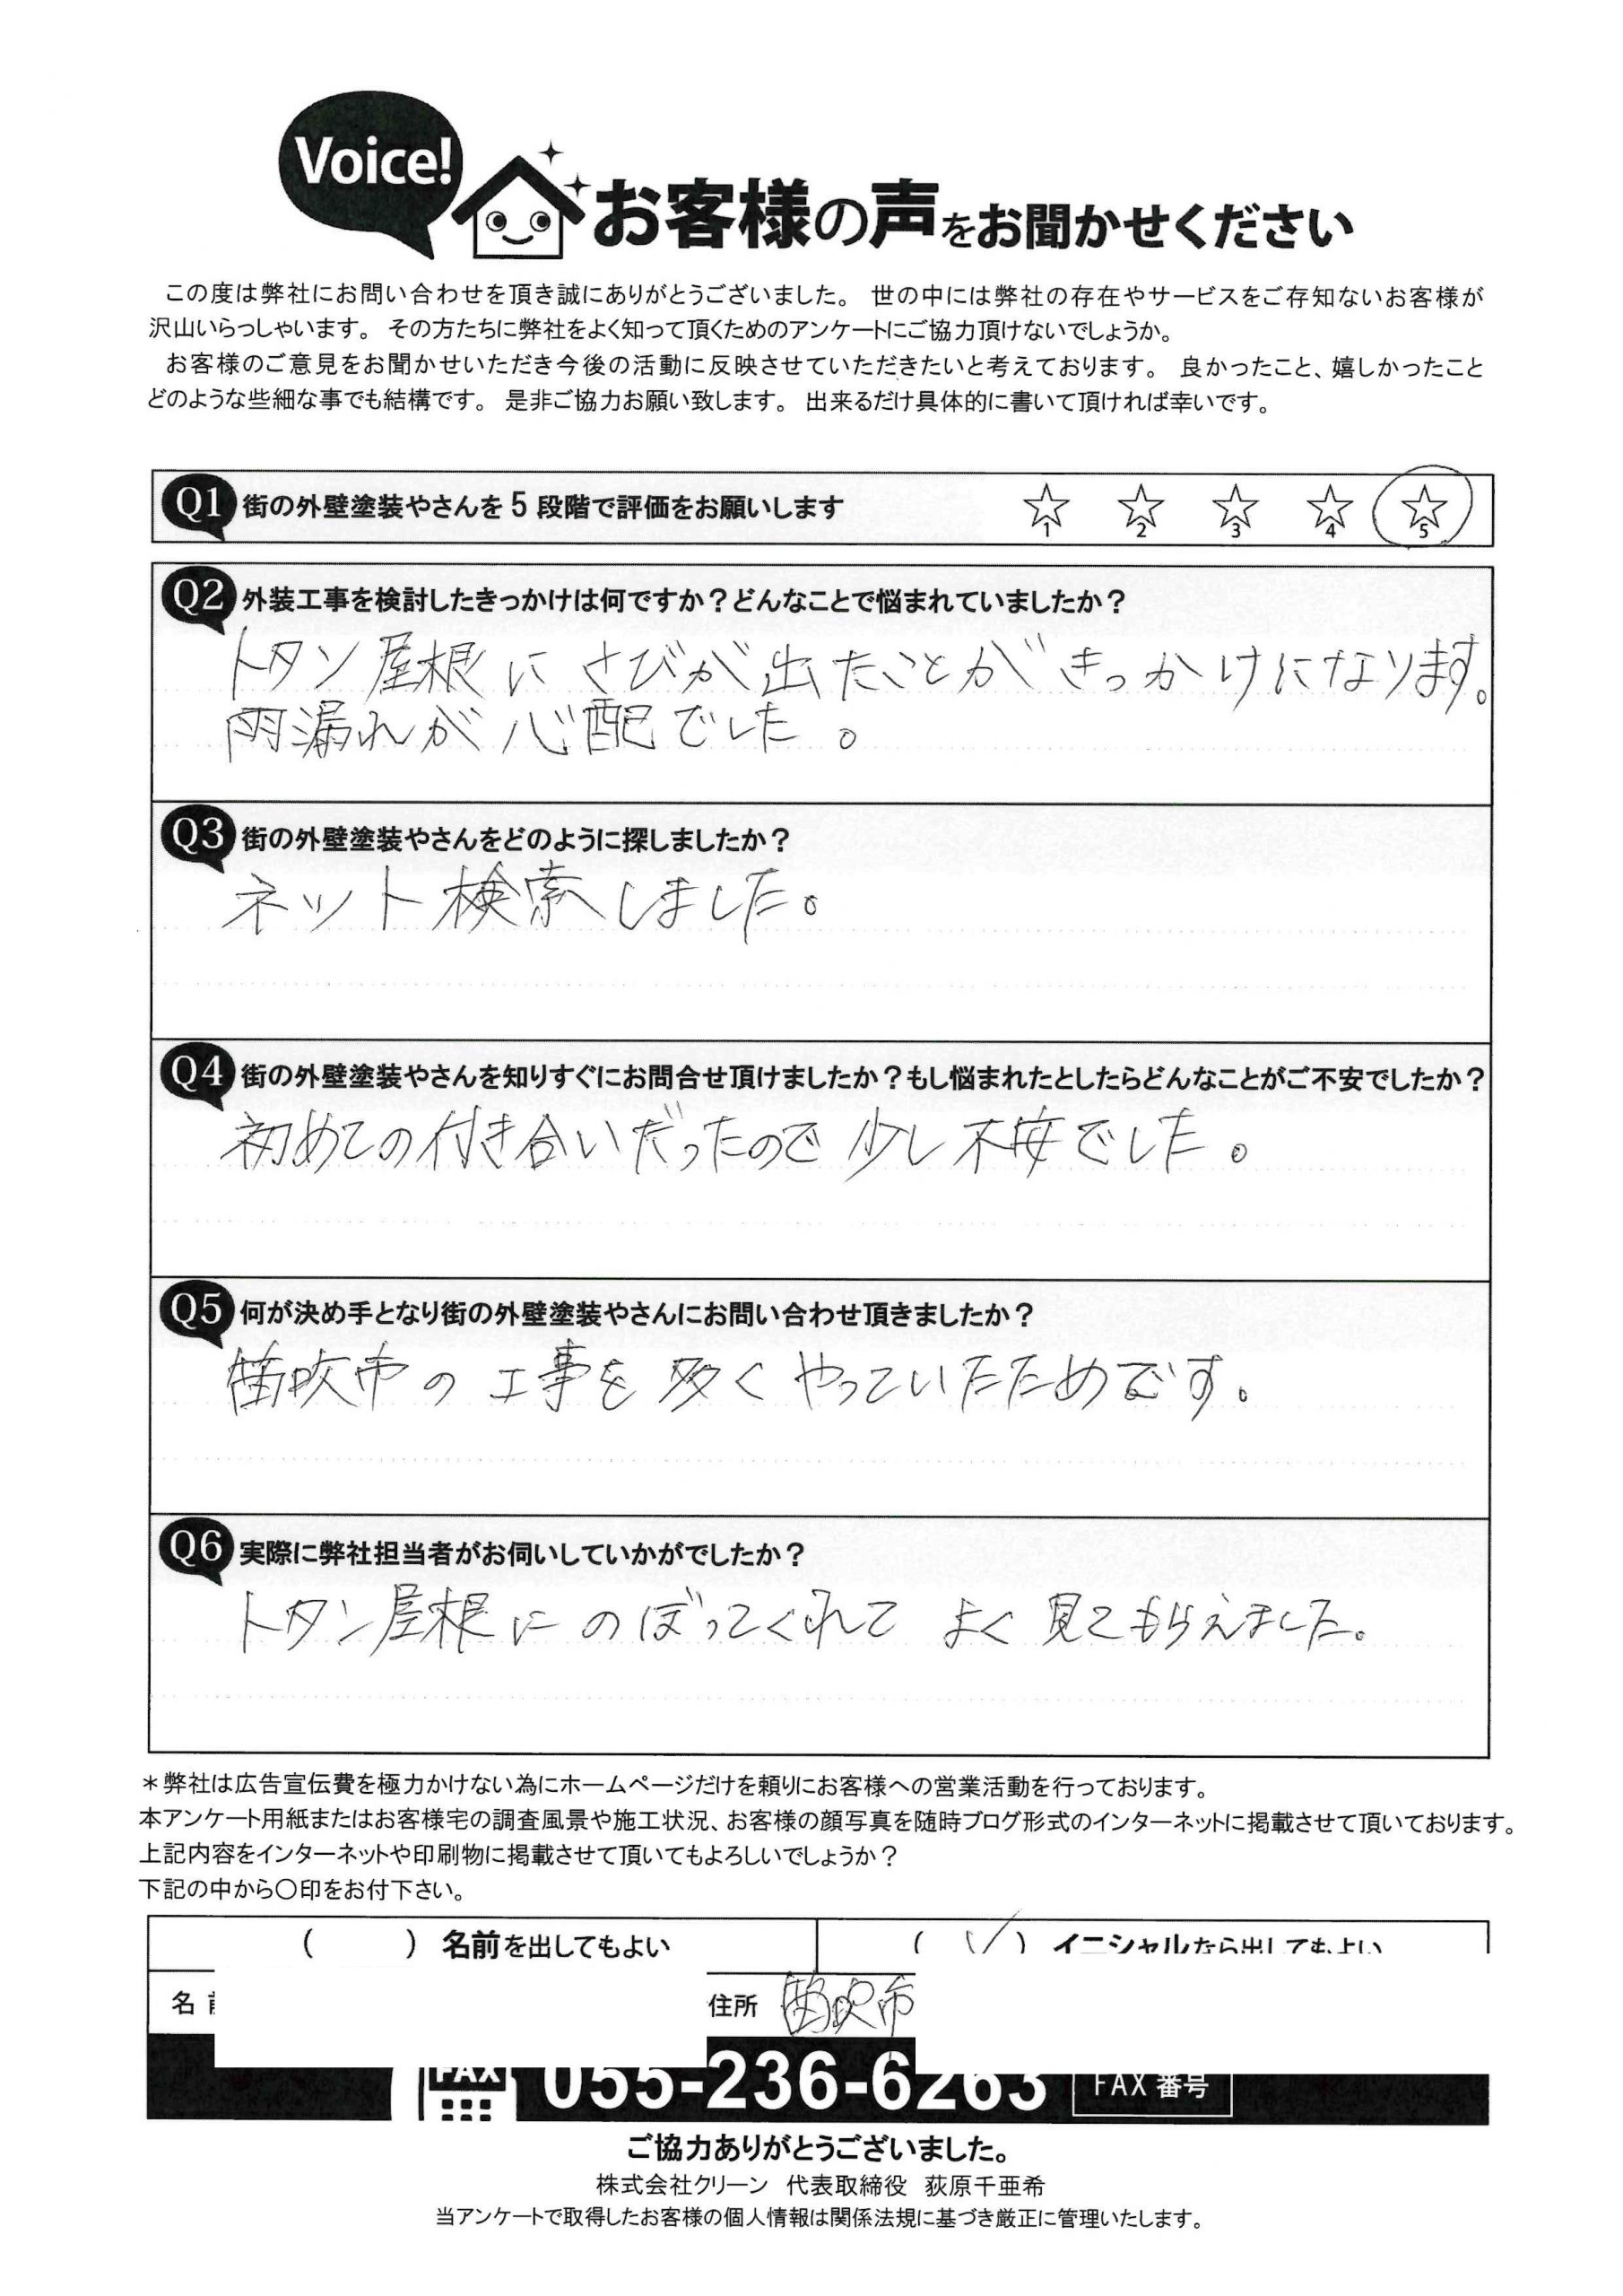 Voice!
お客様の声をお聞かせください
この度は弊社にお問い合わせを頂き誠にありがとうございました。 世の中には弊社の存在やサービスをご存知ないお客様が
沢山いらっしゃいます。 その方たちに弊社をよく知って頂くためのアンケートにご協力頂けないでしょうか。
お客様のご意見をお聞かせいただき今後の活動に反映させていただきたいと考えております。 良かったこと、嬉しかったこと
どのような些細な事でも結構です。 是非ご協力お願い致します。 出来るだけ具体的に書いて頂ければ幸いです。
Q1 街の外壁塗装やさんを5段階で評価をお願いします ☆1 ☆2 ☆3 ☆4 ☆5
Q2 外装工事を検討したきっかけは何ですか？どんなことで悩まれていましたか？
トタン屋根にさびが出たことがきっかけになります。
雨漏れが心配でした。
Q3 街の外壁塗装やさんをどのように探しましたか？
ネット検索しました。
Q4 街の外壁塗装やさんを知りすぐにお問合せ頂けましたか？もし悩まれたとしたらどんなことがご不安でしたか？
初めての付き合いだったので少し不安でした。
Q5 何が決め手となり街の外壁塗装やさんにお問い合わせ頂きましたか？
笛吹市の工事を多くやっていたためです。
Q6 実際に弊社担当者がお伺いしていかがでしたか？
トタン屋根にのぼってくれてよく見てもらえました。
＊弊社は広告宣伝費を極力かけない為にホームページだけを頼りにお客様への営業活動を行っております。
本アンケート用紙またはお客様宅の調査風景や施工状況、お客様の顔写真を随時ブログ形式のインターネットに掲載させて頂いております。
上記内容をインターネットや印刷物に掲載させて頂いてもよろしいでしょうか？
下記の中から〇印をお付下さい。
（　　）名前を出してもよい （ ✓ ）イニシャルなら出してもよい
名 住所 笛吹市
FAX 055-236-6263 FAX 番号
ご協力ありがとうございました。
株式会社クリーン 代表取締役 荻原千亜希
当アンケートで取得したお客様の個人情報は関係法規に基づき厳正に管理いたします。